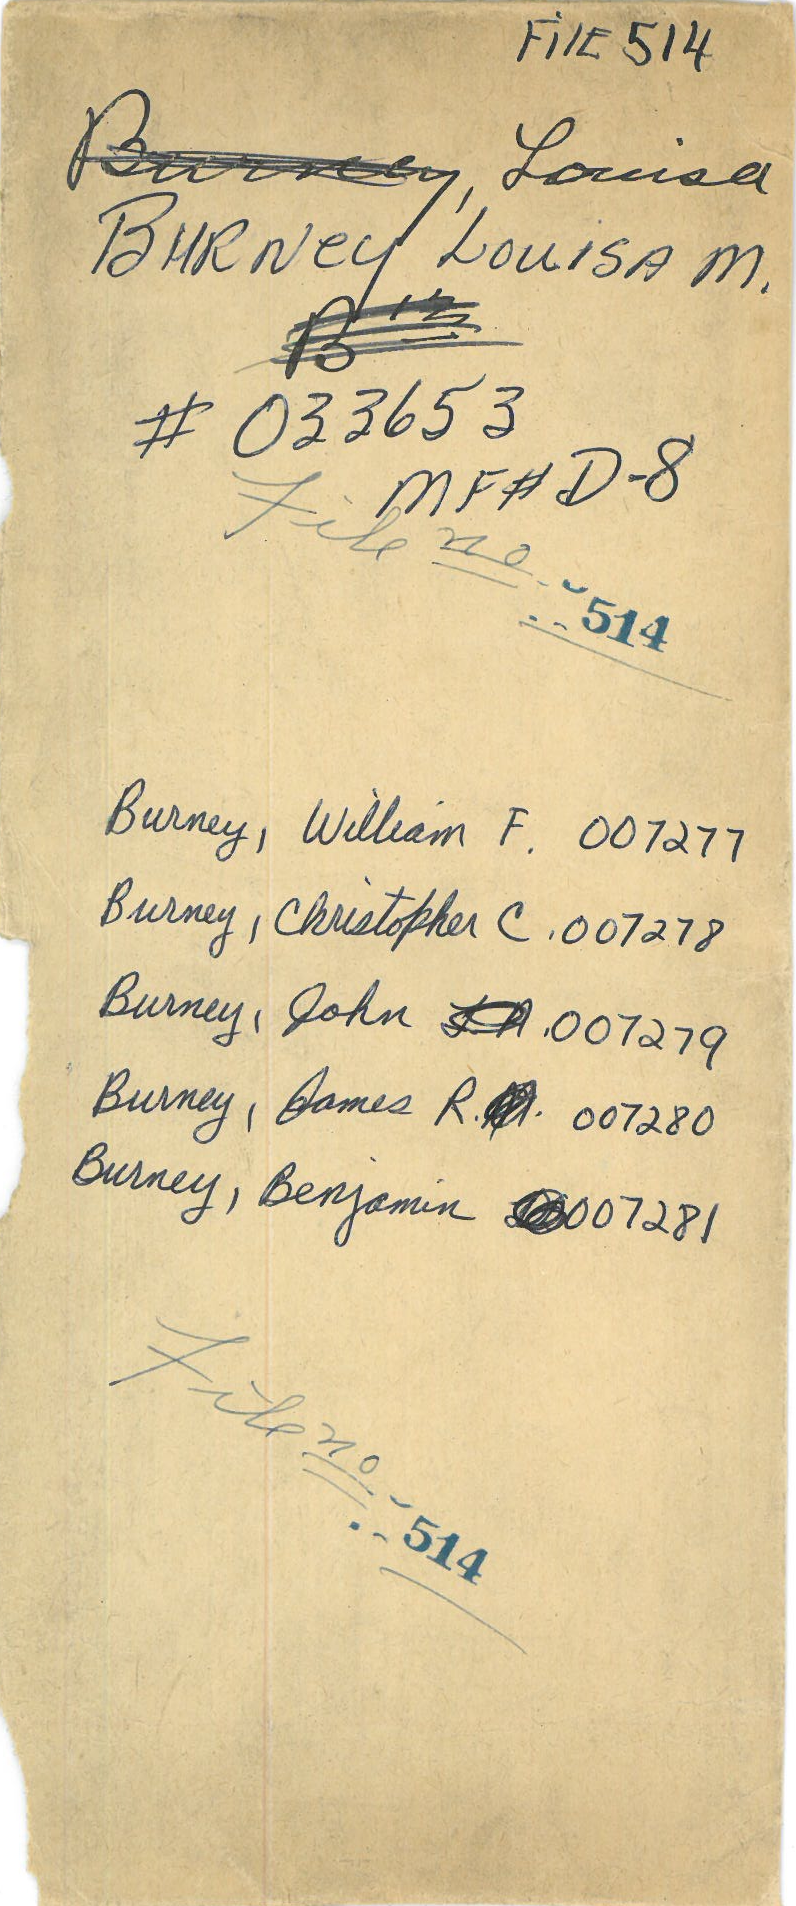 File 514
Burney, Louisa
Burney Louisa M.
B
# 033653
MF# D-8
File no.
514
Burney, William F. 007277
Burney, Christopher C. 007278
Burney, John 007279
Burney, James R. 007280
Burney, Benjamin 007281
File no.
514